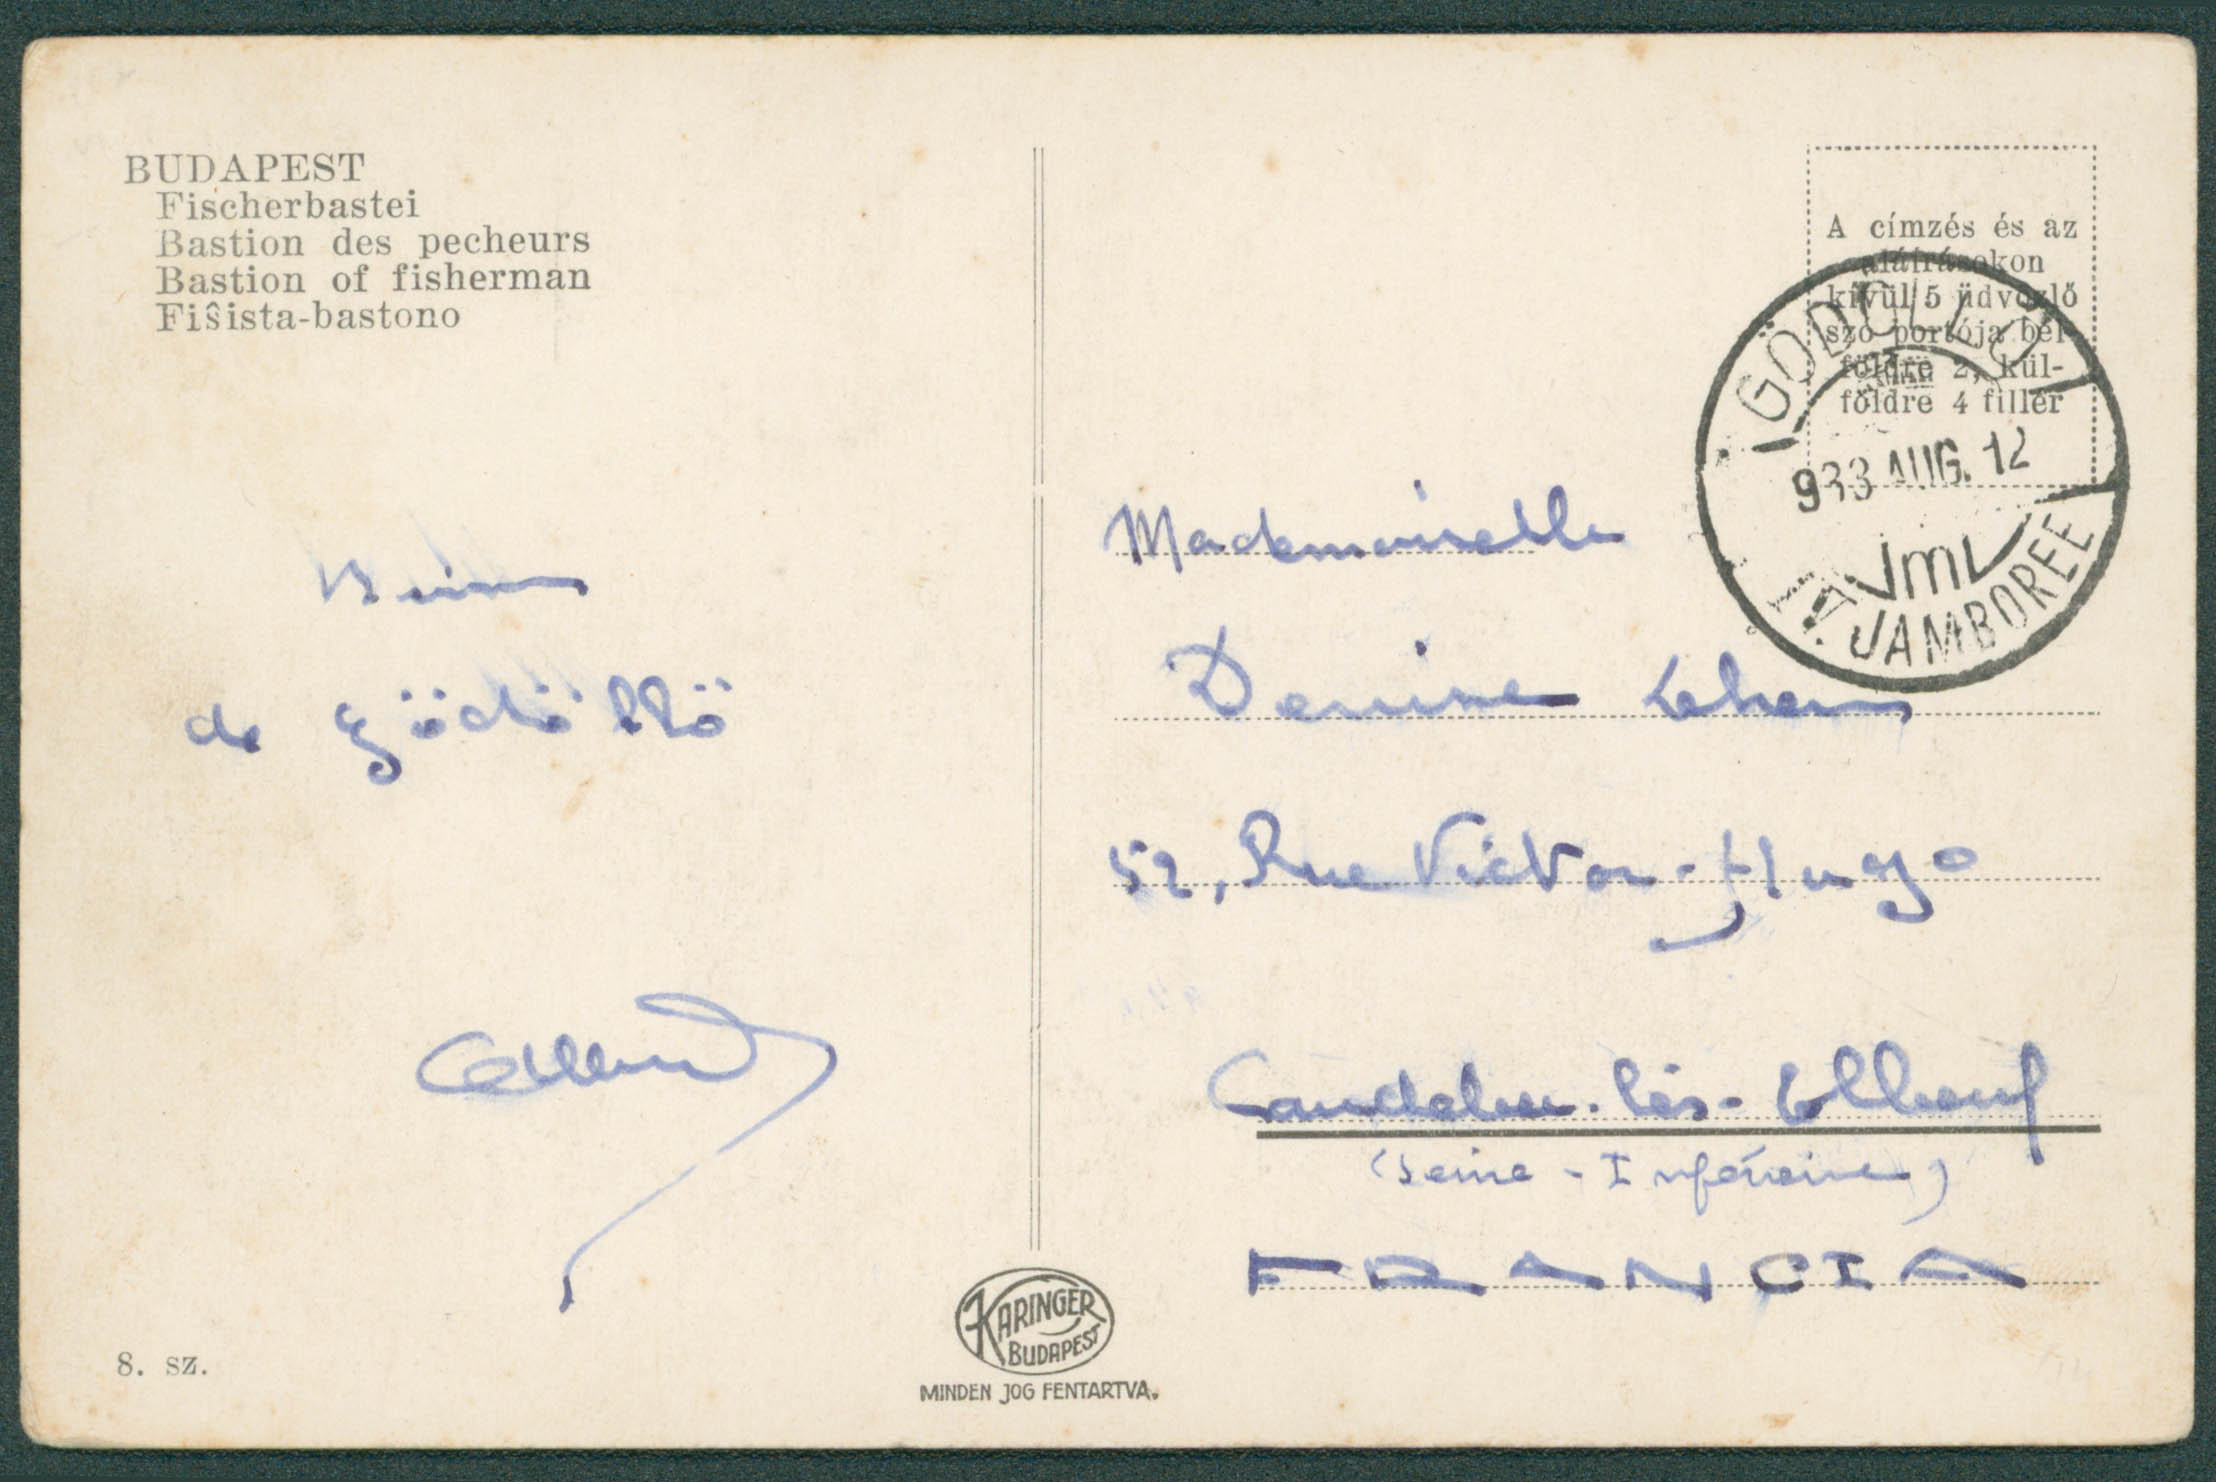 BUDAPEST
Fischerbastei
Bastion des pecheurs
Bastion of fisherman
Fiŝista-bastono
A címzés és az
aláírásokon
kívül 5 üdvözlő
szó portója bel-
földre 2, kül-
földre 4 fillér
GÖDÖLLŐ
933 AUG. 12
IV. JAMBOREE
de gödöllö
Mademoiselle
Denise
52, Rue Victor-Hugo
Caudebec-lès-Elbeuf
(Seine-Inférieure)
FRANCIA
8. sz.
KARINGER
BUDAPEST
MINDEN JOG FENTARTVA.